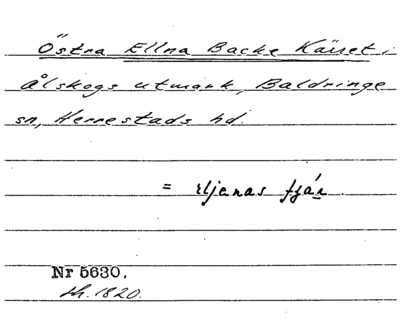 Östra Ellna Backe Kärret i
Ålskogs utmark, Baldringe
sn, Herrestads hd.
= eljenas fjár
Nr 5630.
sh. 1820.